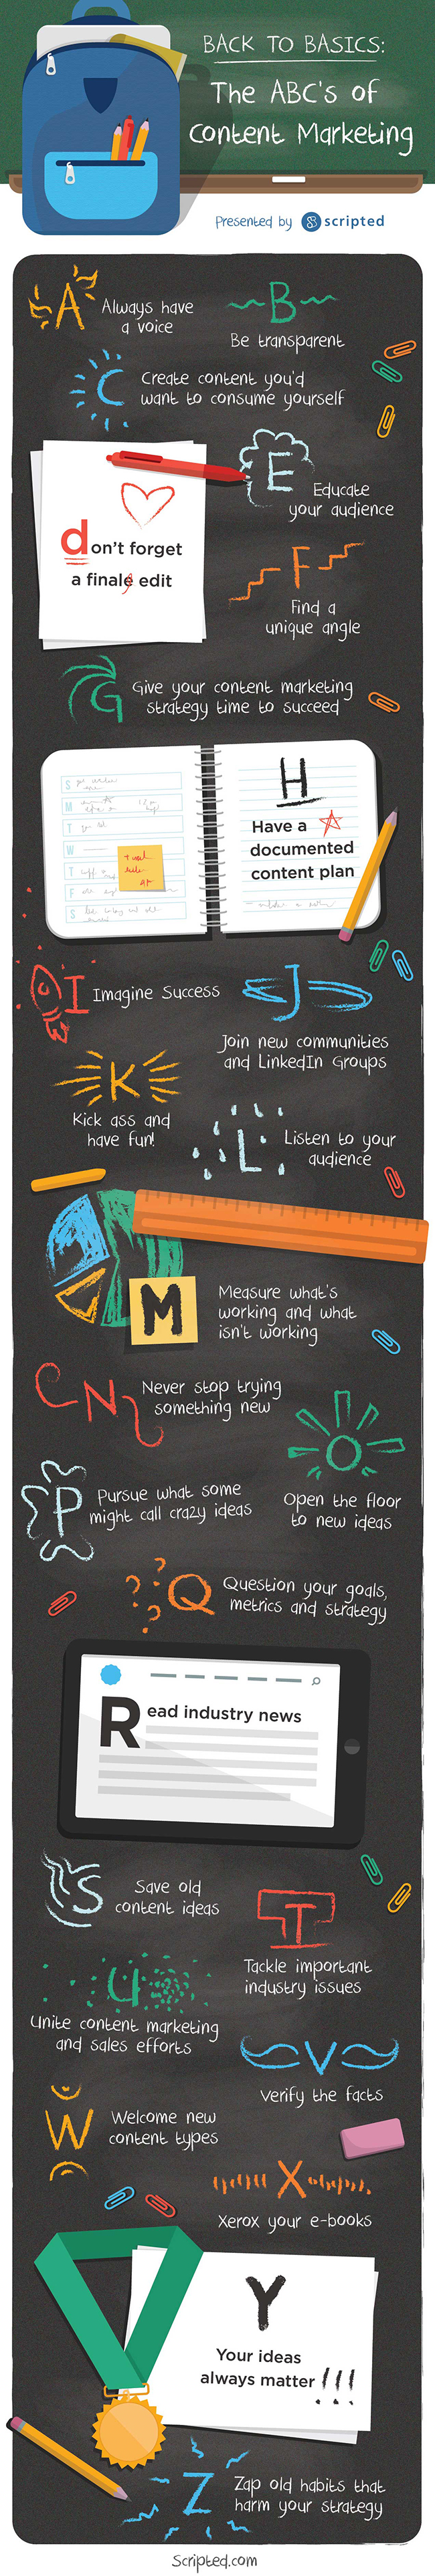 BACK TO BASICS:
The ABC's of
Content Marketing
Presented by scripted
A
Always have
a voice
B
Be transparent
C
Create content you'd
want to consume yourself
don't forget
a finale edit
E
Educate
your audience
F
Find a
unique angle
G
Give your content marketing
strategy time to succeed
S
M
T
W
T
F
S
H
Have a
documented
content plan
I
Imagine Success
J
Join new communities
and LinkedIn Groups
K
Kick ass and
have fun!
L
Listen to your
audience
M
Measure what's
working and what
isn't working
N
Never stop trying
something new
O
Open the floor
to new ideas
P
Pursue what some
might call crazy ideas
???Q
Question your goals,
metrics and strategy
Read industry news
S
Save old
content ideas
T
Tackle important
industry issues
U
Unite content marketing
and sales efforts
V
Verify the facts
W
Welcome new
content types
X
Xerox your e-books
Y
Your ideas
always matter!!!
Z
Zap old habits that
harm your strategy
Scripted.com